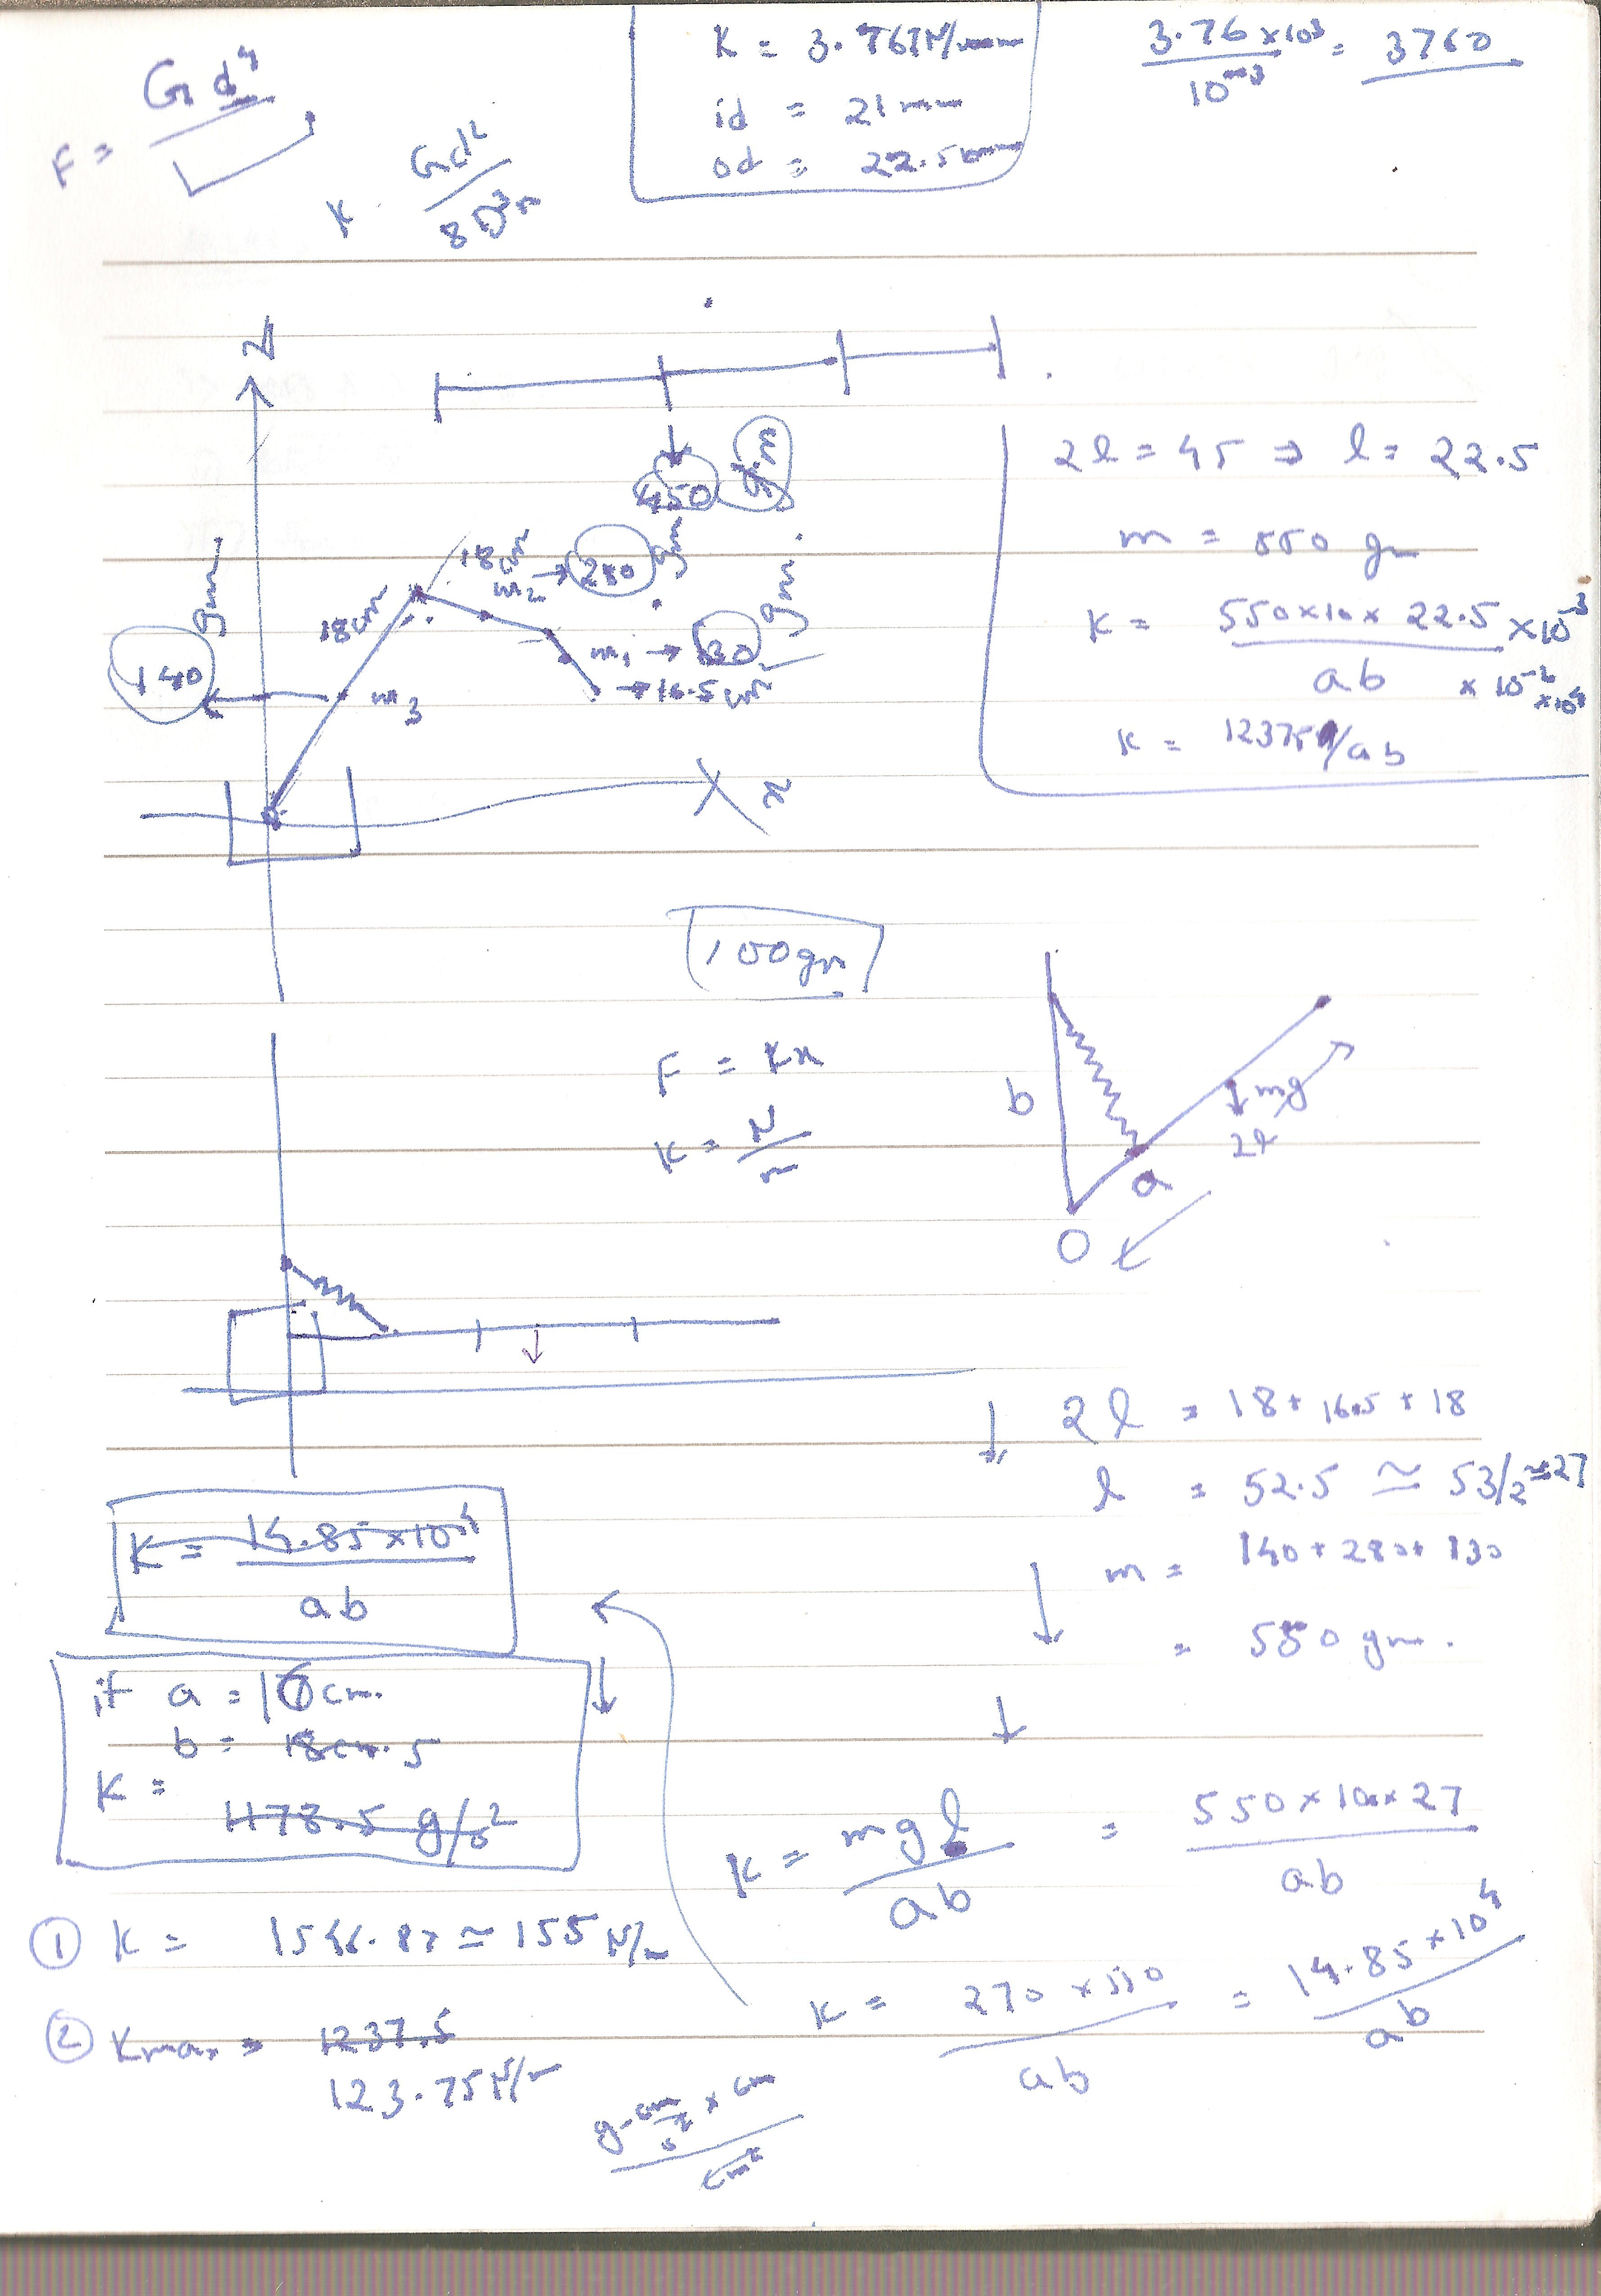 F = G d⁴
K Gd⁴ / 8D³n
K = 3.767N/mm
id = 21mm
od = 22.5mm
3.76 × 10³ / 10⁻³ = 3760
450 gm
18cm
m₂ → 280 gm
18cm
m₁ → 130 gm
→ 16.5cm
140 gm
m₃
x
2l = 45 ⇒ l = 22.5
m = 550 gm
K = 550×10× 22.5 ×10⁻³ / ab × 10⁻² ×10⁴
K = 12375/ab
100gm
F = Kx
K = N/m
b
mg
2l
a
O
2l = 18+ 16.5 + 18
l = 52.5 ≃ 53/2 ≃27
m = 140 + 280+ 130
= 550 gm.
K = 14.85×10⁴ / ab
if a = 10cm.
b = 18cm. 5
K =
1178.5 g/s²
K = mgl / ab = 550×10××27 / ab
K = 270 × 550 / ab = 14.85×10⁴ / ab
① K = 1546.87 ≃ 155 N/m
② Kmax = 1237.5
123.75N/m
g-cm/s² × cm / cm²